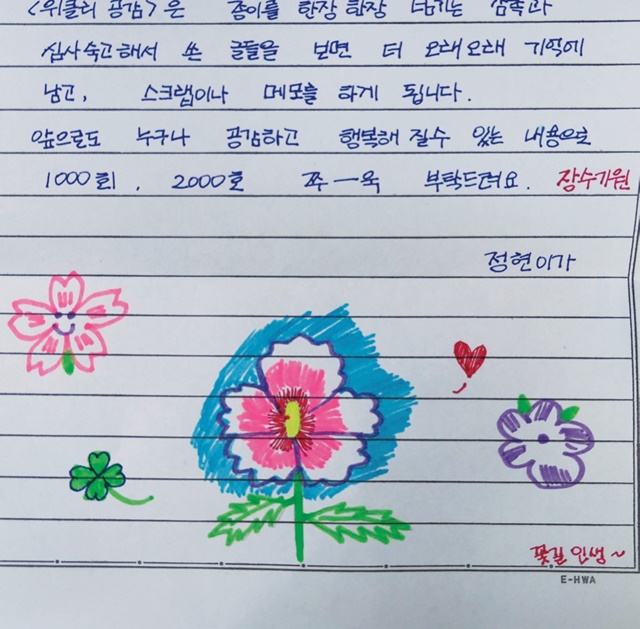 <위클리 공감>은 종이를 한장 한장 넘기는 감촉과
심사숙고해서 쓴 글들을 보면 더 오래오래 기억에
남고, 스크랩이나 메모를 하게 됩니다.
앞으로도 누구나 공감하고 행복해 질수 있는 내용으로
1000회, 2000호 쭈-욱 부탁드려요. 장수기원
정현이가
꽃길 인생~
E-HWA